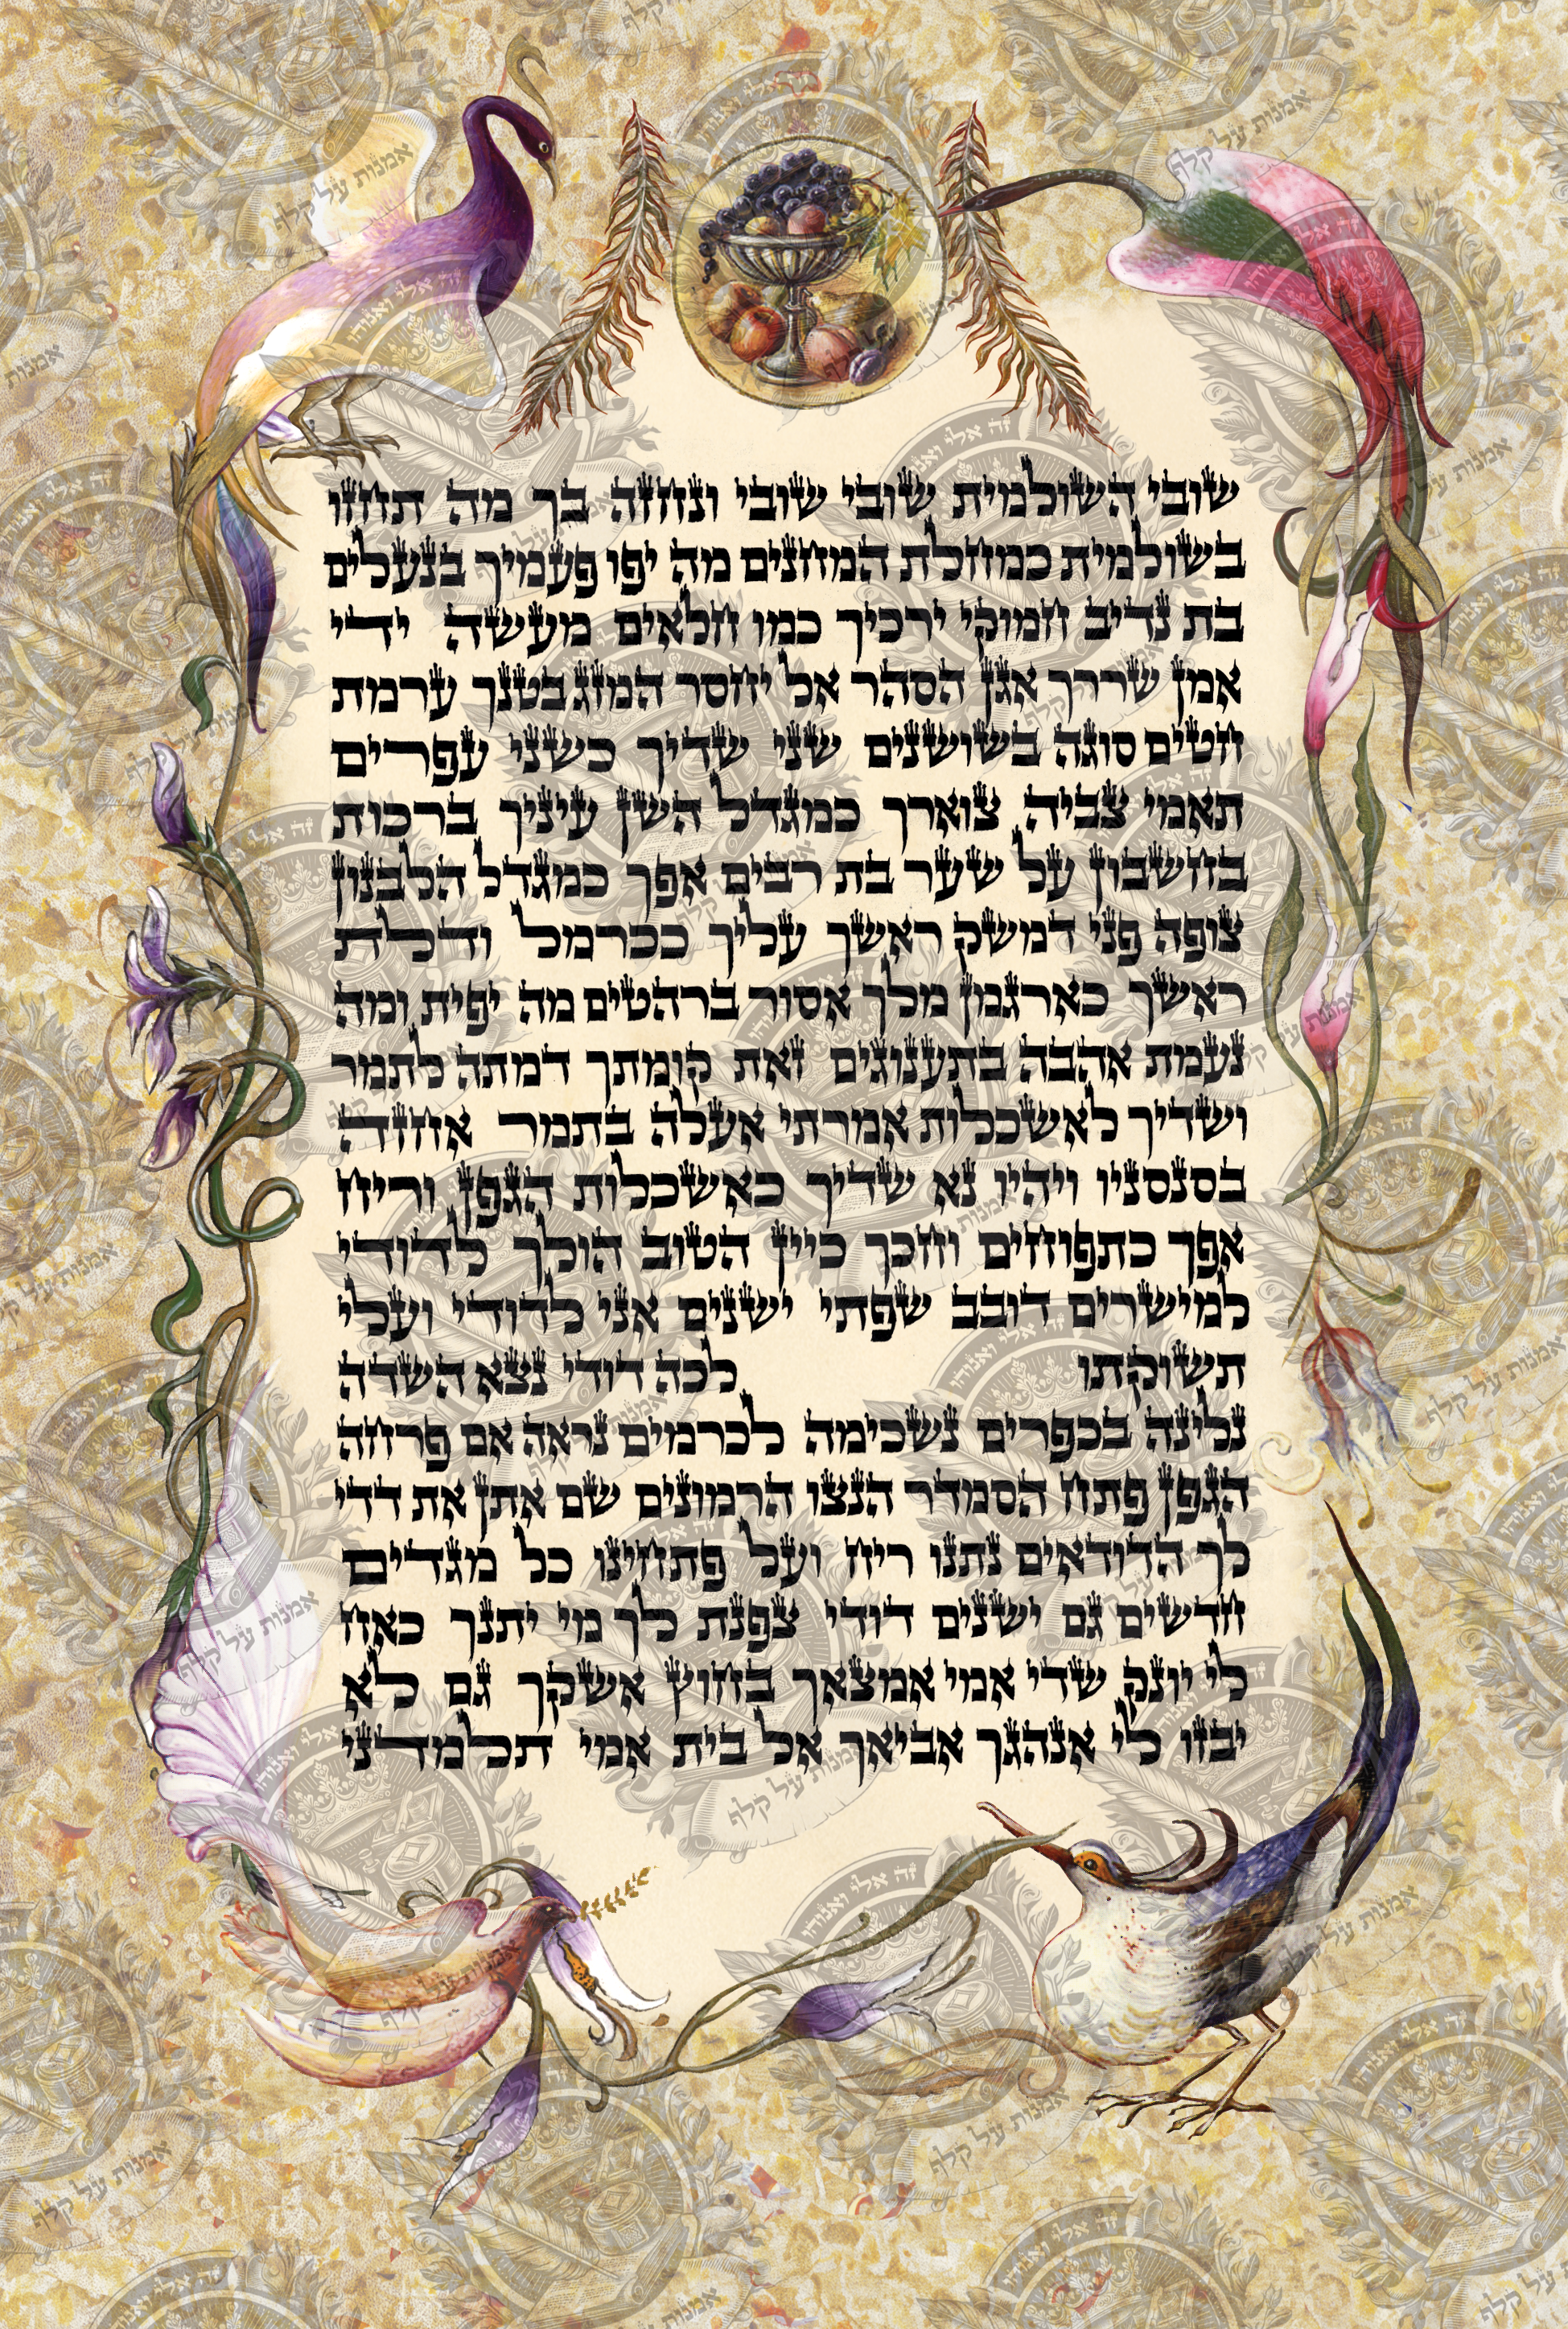 שובי השולמית שובי שובי ונחזה בך מה תחזו
בשולמית כמחלת המחנים מה יפו פעמיך בנעלים
בת נדיב חמוקי ירכיך כמו חלאים מעשה ידי
אמן שררך אגן הסהר אל יחסר המזג בטנך ערמת
חטים סוגה בשושנים שני שדיך כשני עפרים
תאמי צביה צוארך כמגדל השן עיניך ברכות
בחשבון על שער בת רבים אפך כמגדל הלבנון
צופה פני דמשק ראשך עליך ככרמל ודלת
ראשך כארגמן מלך אסור ברהטים מה יפית ומה
נעמת אהבה בתענוגים זאת קומתך דמתה לתמר
ושדיך לאשכלות אמרתי אעלה בתמר אחזה
בסנסניו ויהיו נא שדיך כאשכלות הגפן וריח
אפך כתפוחים וחכך כיין הטוב הולך לדודי
למישרים דובב שפתי ישנים אני לדודי ועלי
תשוקתו לכה דודי נצא השדה
נלינה בכפרים נשכימה לכרמים נראה אם פרחה
הגפן פתח הסמדר הנצו הרמונים שם אתן את דדי
לך הדודאים נתנו ריח ועל פתחינו כל מגדים
חדשים גם ישנים דודי צפנתי לך מי יתנך כאח
לי יונק שדי אמי אמצאך בחוץ אשקך גם לא
יבוזו לי אנהגך אביאך אל בית אמי תלמדני
זה אלי ואנוהו
אמנות על קלף